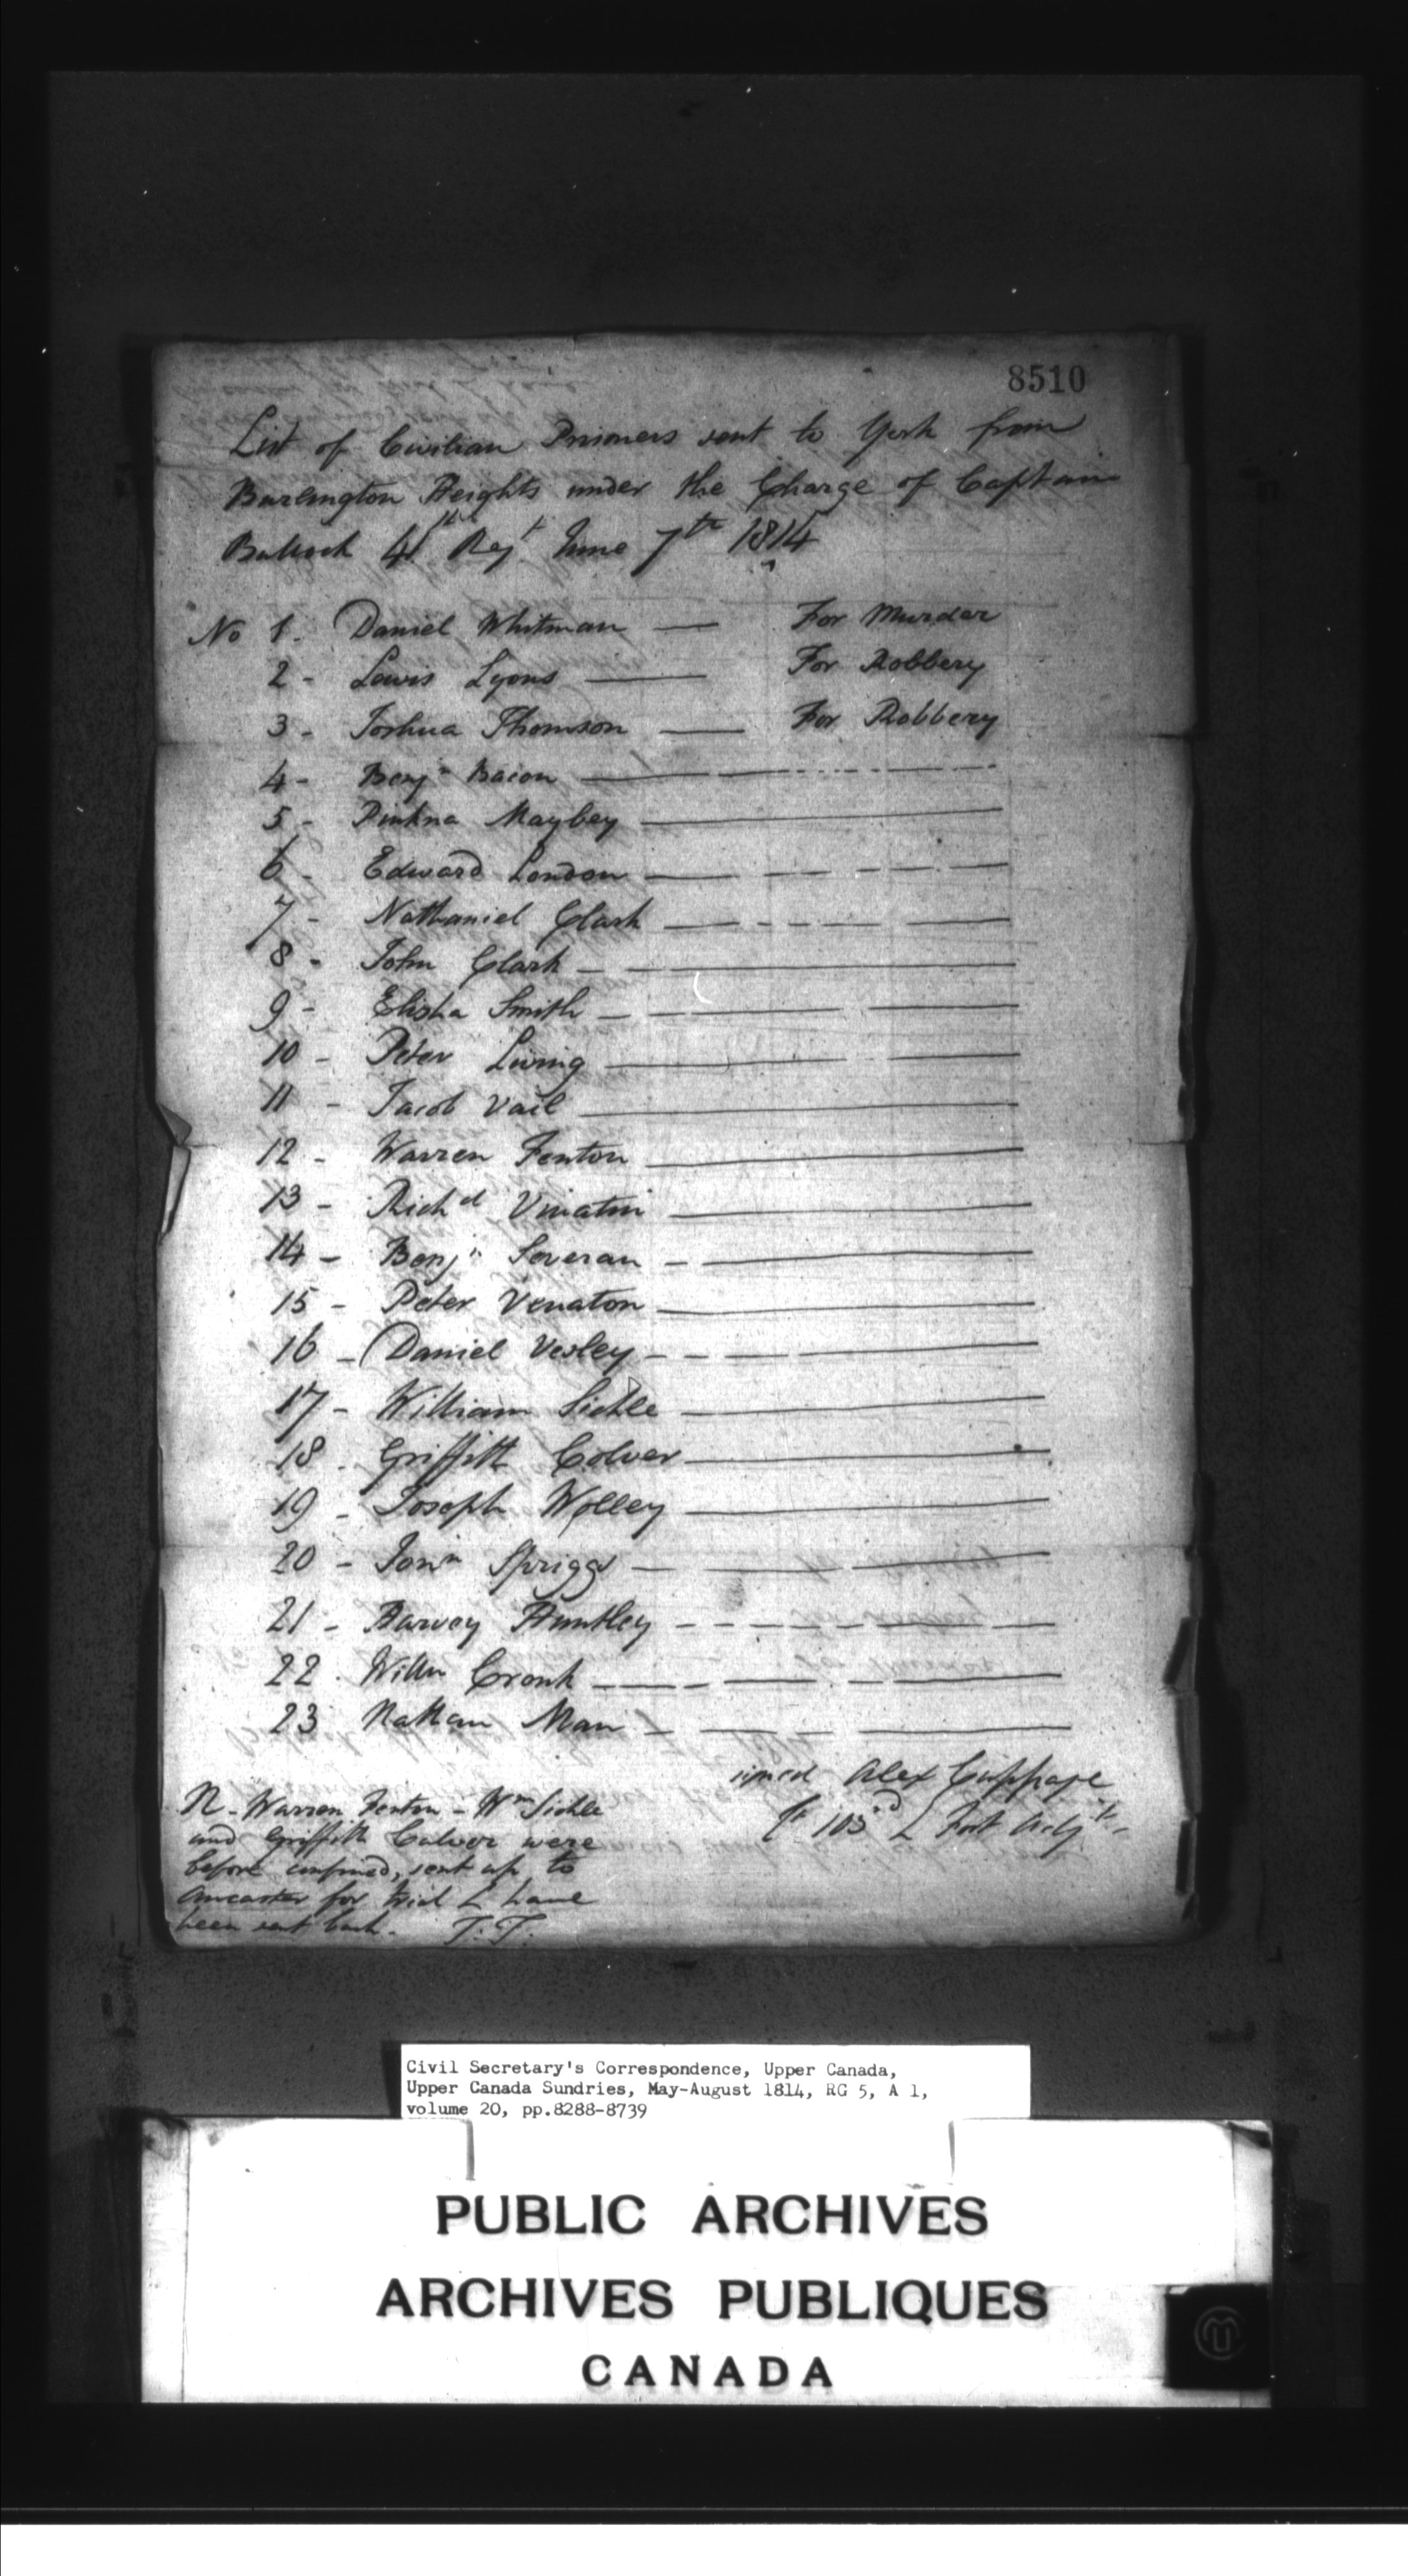 8510
List of Civilian Prisoners sent to York from
Burlington Heights under the Charge of Captain
Bullock 41st Regt June 7th 1814
No 1. Daniel Whitman — For Murder
2 - Lewis Lyons — For Robbery
3 - Joshua Thomson — For Robbery
4 - Benjn Bacon
5 - Pinkna Maybey
6 - Edward London
7 - Nathaniel Clark
8 - John Clark
9 - Elisha Smith
10 - Peter Living
11 - Jacob Vail
12 - Warren Fenton
13 - Richd Vinatin
14 - Benjn Severan
15 - Peter Venaton
16 - Daniel Vesley
17 - William Sickle
18 - Griffith Colver
19 - Joseph Wolley
20 - Jonn Spriggs
21 - Harvey Huntley
22 Willm Cronk
23 Nathan Man
signed Alex Cuppage
Lt 103rd & Fort Adjt
N - Warren Fenton - Wm Sickle
and Griffith Culver were
before confined, sent up to
Ancaster for trial & have
been sent back. T. T.
Civil Secretary's Correspondence, Upper Canada,
Upper Canada Sundries, May-August 1814, RG 5, A 1,
volume 20, pp.8288-8739
PUBLIC ARCHIVES
ARCHIVES PUBLIQUES
CANADA